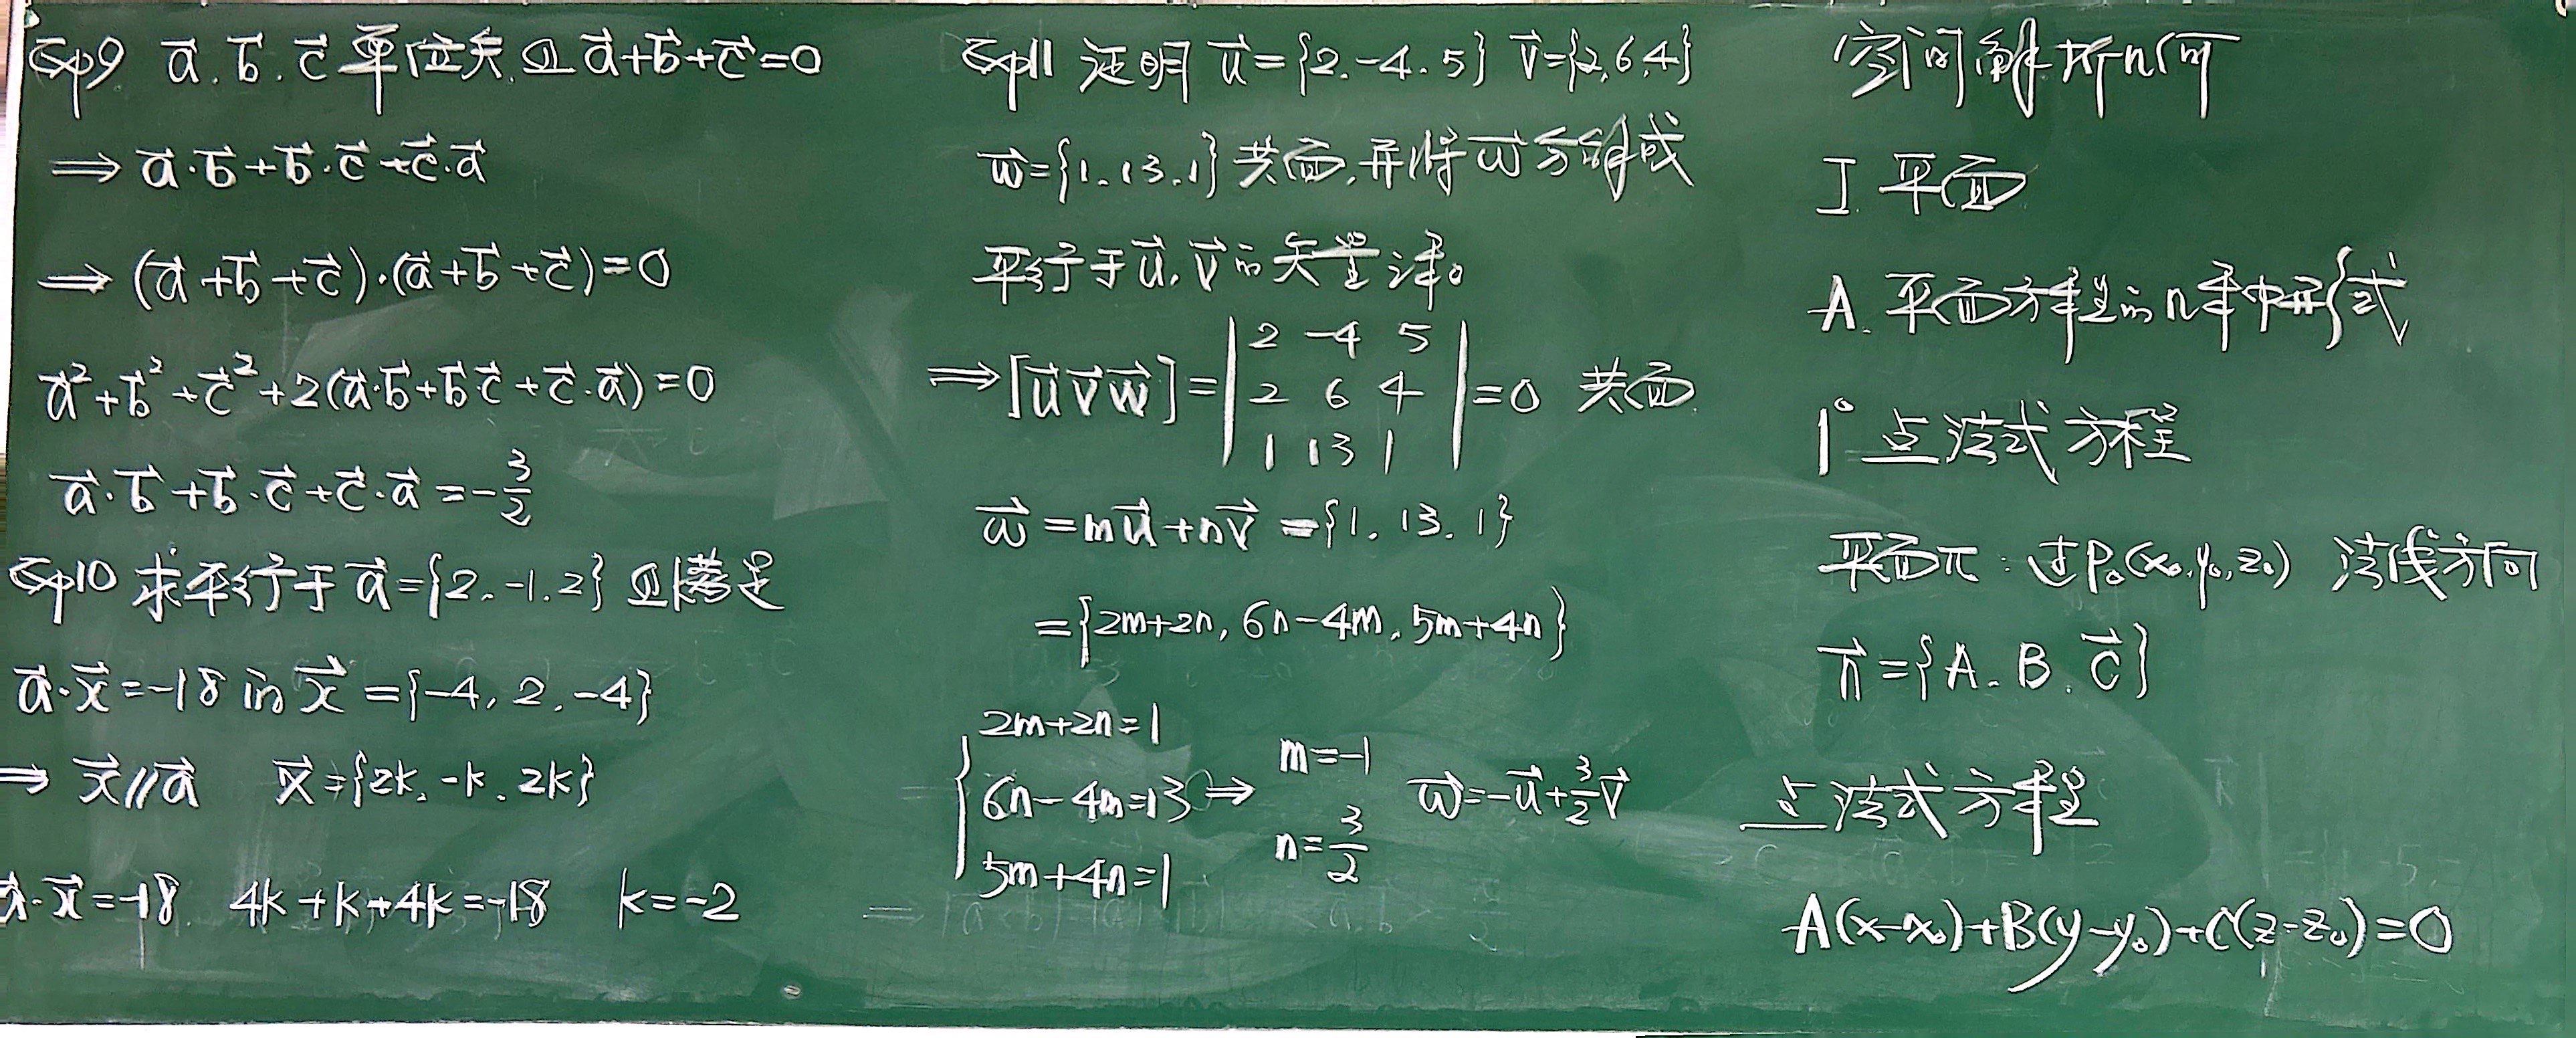 Exp9 a⃗.b⃗.c⃗ 单位矢.且 a⃗+b⃗+c⃗=0
⇒ a⃗·b⃗+b⃗·c⃗+c⃗·a⃗
⇒ (a⃗+b⃗+c⃗)·(a⃗+b⃗+c⃗)=0
a⃗²+b⃗²+c⃗²+2(a⃗·b⃗+b⃗·c⃗+c⃗·a⃗)=0
a⃗·b⃗+b⃗·c⃗+c⃗·a⃗=-3/2
Exp10 求平行于 a⃗={2.-1.2} 且满足
a⃗·x⃗=-18 的 x⃗={-4,2.-4}
⇒ x⃗∥a⃗ x⃗={2k.-k.2k}
a⃗·x⃗=-18. 4k+k+4k=-18 k=-2
Exp11 证明 u⃗={2.-4.5} v⃗={2,6,4}
w⃗={1.13.1} 共面.并将w⃗分解成
平行于u⃗.v⃗的矢量之和。
⇒[u⃗v⃗w⃗]=|2 -4 5
2 6 4
1 13 1|=0 共面
w⃗=mu⃗+nv⃗={1.13.1}
={2m+2n,6n-4m,5m+4n}
{2m+2n=1
6n-4m=13
5m+4n=1
⇒ m=-1
n=3/2
w⃗=-u⃗+3/2v⃗
空间解析几何
I.平面
A.平面方程的几种形式
1°点法式方程
平面π:过P₀(x₀,y₀,z₀) 法线方向
n⃗={A.B.C⃗}
点法式方程
A(x-x₀)+B(y-y₀)+C(z-z₀)=0